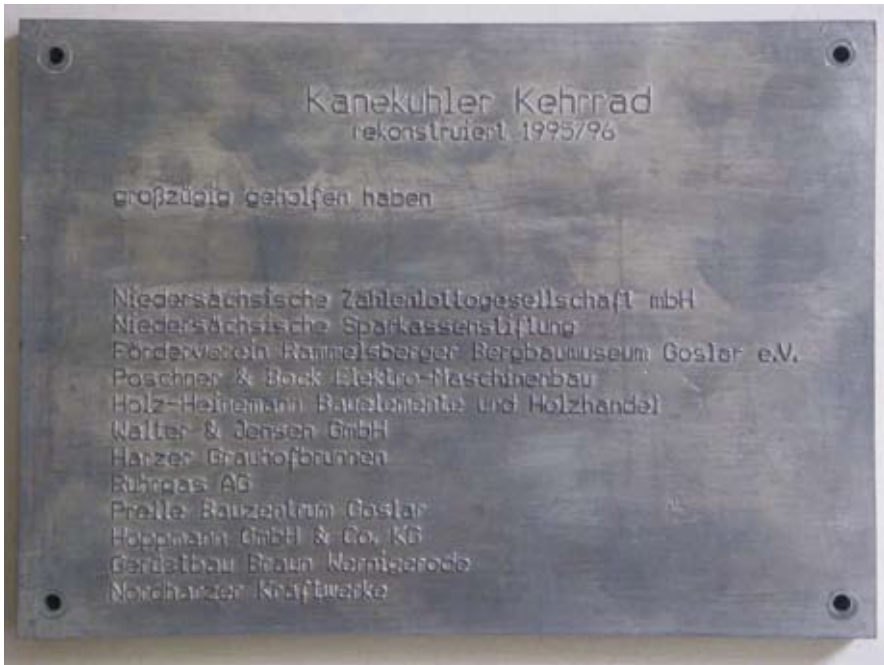 Kanekuhler Kehrrad
rekonstruiert 1995/96
großzügig geholfen haben
Niedersächsische Zahlenlottogesellschaft mbH
Niedersächsische Sparkassenstiftung
Förderverein Rammelsberger Bergbaumuseum Goslar e.V.
Poschner & Bock Elektro-Maschinenbau
Holz-Heinemann Bauelemente und Holzhandel
Walter & Jensen GmbH
Harzer Grauhofbrunnen
Ruhrgas AG
Prelle Bauzentrum Goslar
Hoppmann GmbH & Co. KG
Gerüstbau Braun Wernigerode
Nordharzer Kraftwerke